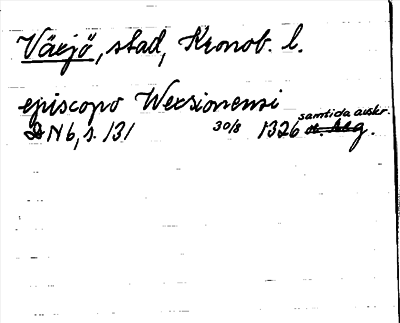 Växjö, stad, Kronob. l.
episcopo Wexsionensi
samtida avskr.
DN 6, s. 131 30/8 1326